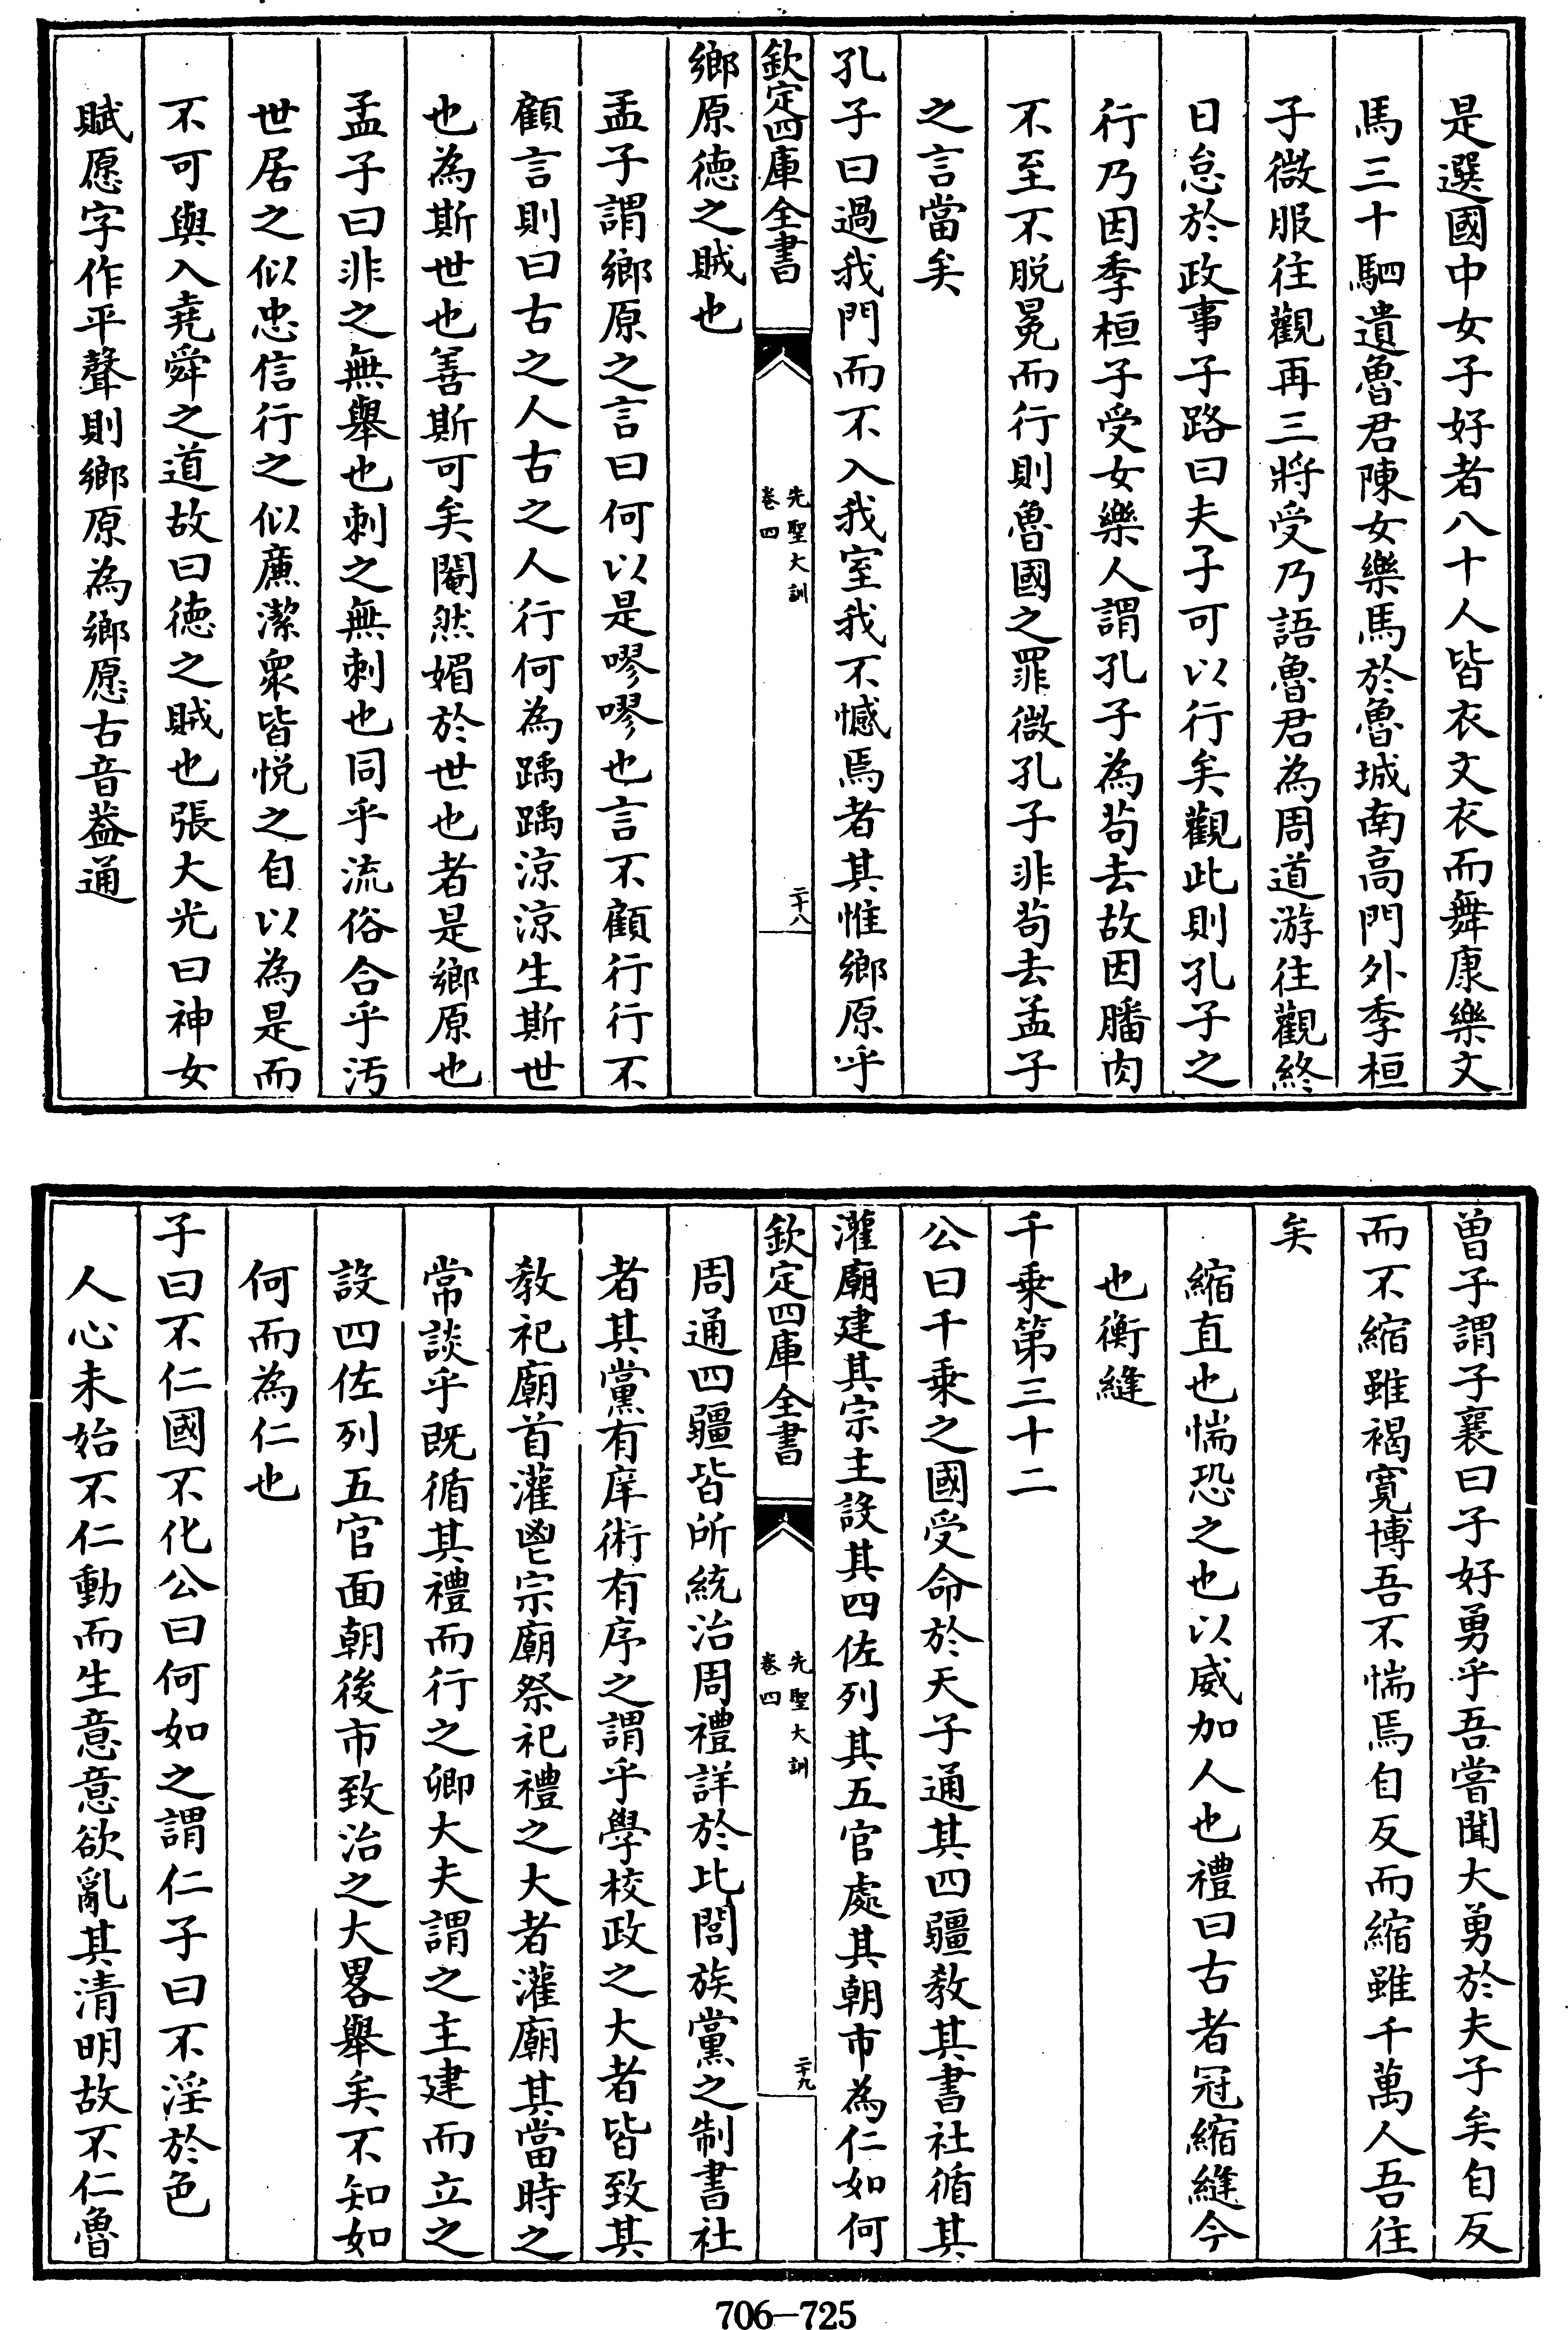 是選國中女子好者八十人皆衣文衣而舞康樂文
馬三十駟遺魯君陳女樂馬於魯城南高門外季桓
子微服往觀再三將受乃語魯君為周道游往觀終
日怠於政事子路曰夫子可以行矣觀此則孔子之
行乃因季桓子受女樂人謂孔子為茍去故因膰肉
不至不脱冕而行則魯國之罪微孔子非茍去孟子
之言當矣
孔子曰過我門而不入我室我不憾焉者其惟鄉原乎
欽定四庫全書
先聖大訓
卷四
二十八
鄉原徳之賊也
孟子謂鄉原之言曰何以是嘐嘐也言不顧行行不
顧言則曰古之人古之人行何為踽踽涼涼生斯世
也為斯世也善斯可矣閹然媚於世也者是鄉原也
孟子曰非之無舉也刺之無刺也同乎流俗合乎汚
世居之似忠信行之似㢘潔衆皆悦之自以為是而
不可與入堯舜之道故曰徳之賊也張大光曰神女
賦愿字作平聲則鄉原為鄉愿古音葢通
曾子謂子襄曰子好勇乎吾嘗聞大勇於夫子矣自反
而不縮雖褐寛博吾不惴焉自反而縮雖千萬人吾往
矣
縮直也惴恐之也以威加人也禮曰古者冠縮縫今
也衡縫
千乗第三十二
公曰千乗之國受命於天子通其四疆教其書社循其
灌廟建其宗主設其四佐列其五官處其朝市為仁如何
欽定四庫全書
先聖大訓
卷四
二十九
周通四疆皆所統治周禮詳於比閭族黨之制書社
者其黨有庠術有序之謂乎學校政之大者皆致其
教祀廟首灌鬯宗廟祭祀禮之大者灌廟其當時之
常談乎既循其禮而行之卿大夫謂之主建而立之
設四佐列五官面朝後市致治之大畧舉矣不知如
何而為仁也
子曰不仁國不化公曰何如之謂仁子曰不淫於色
人心未始不仁動而生意意欲亂其清明故不仁魯
706—725